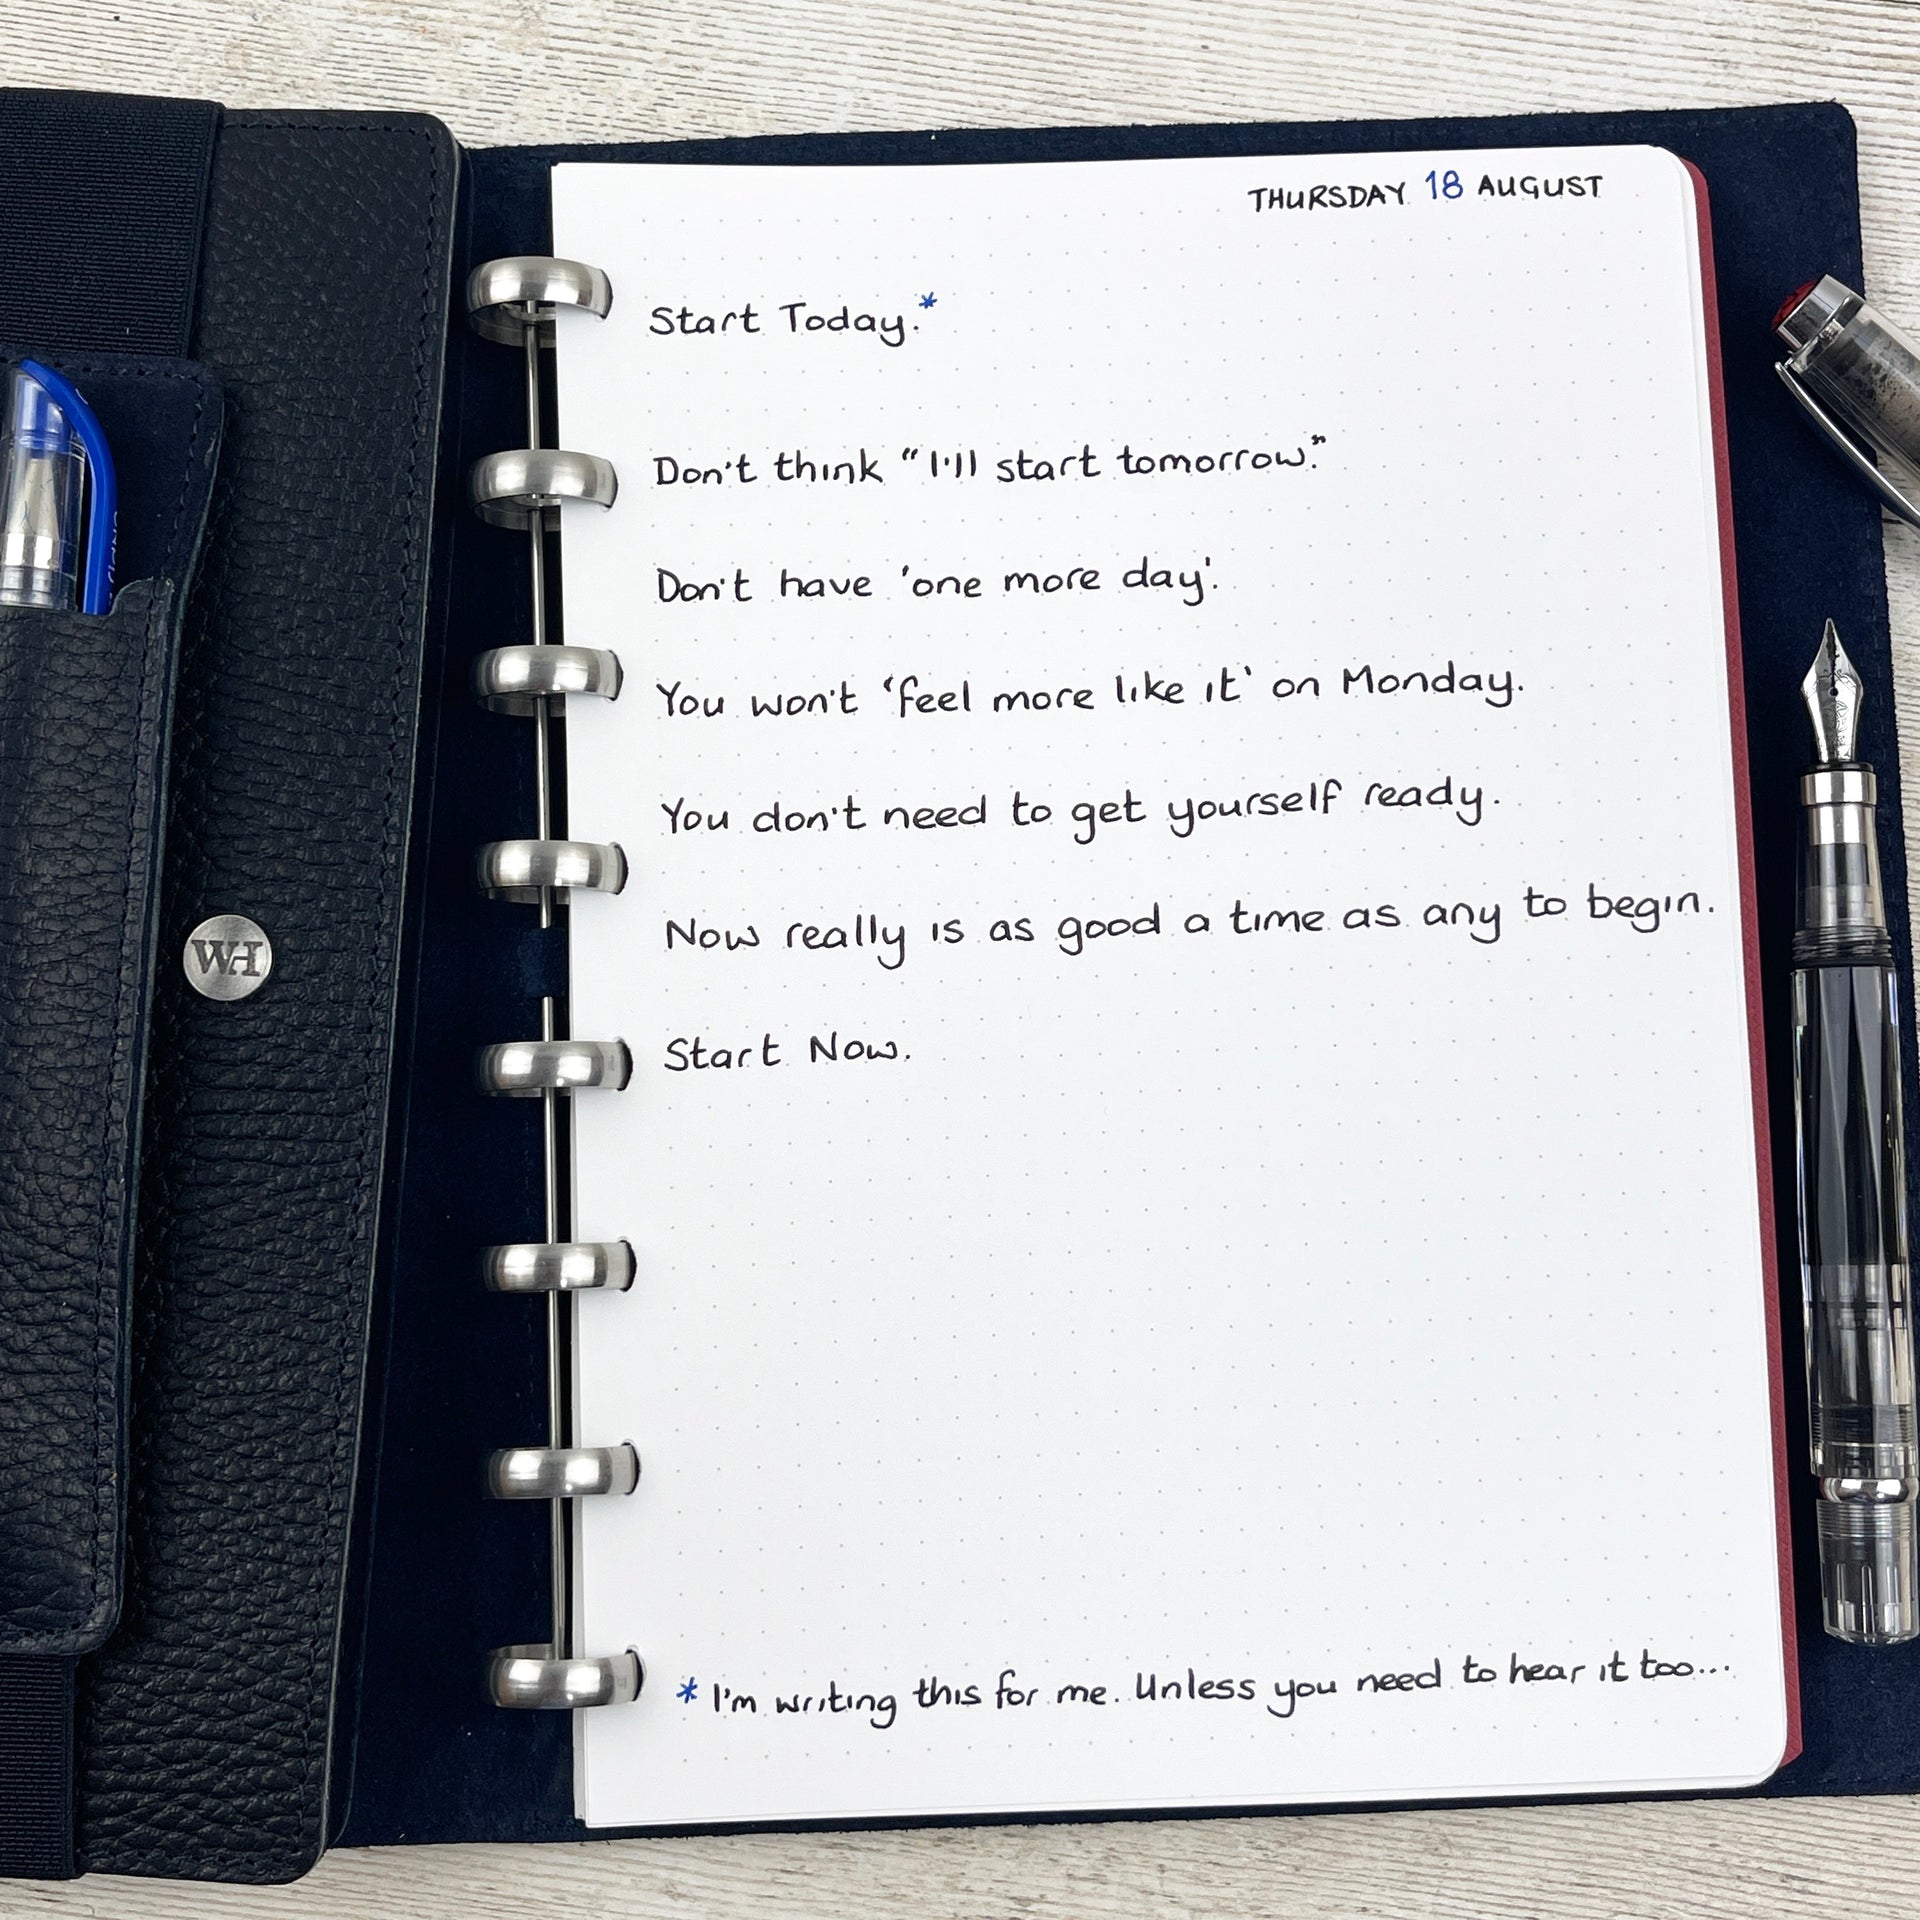 THURSDAY 18 AUGUST
Start Today.*
Don't think "I'll start tomorrow."
Don't have 'one more day'.
You won't 'feel more like it' on Monday.
You don't need to get yourself ready.
Now really is as good a time as any to begin.
Start Now.
* I'm writing this for me. Unless you need to hear it too...
WH